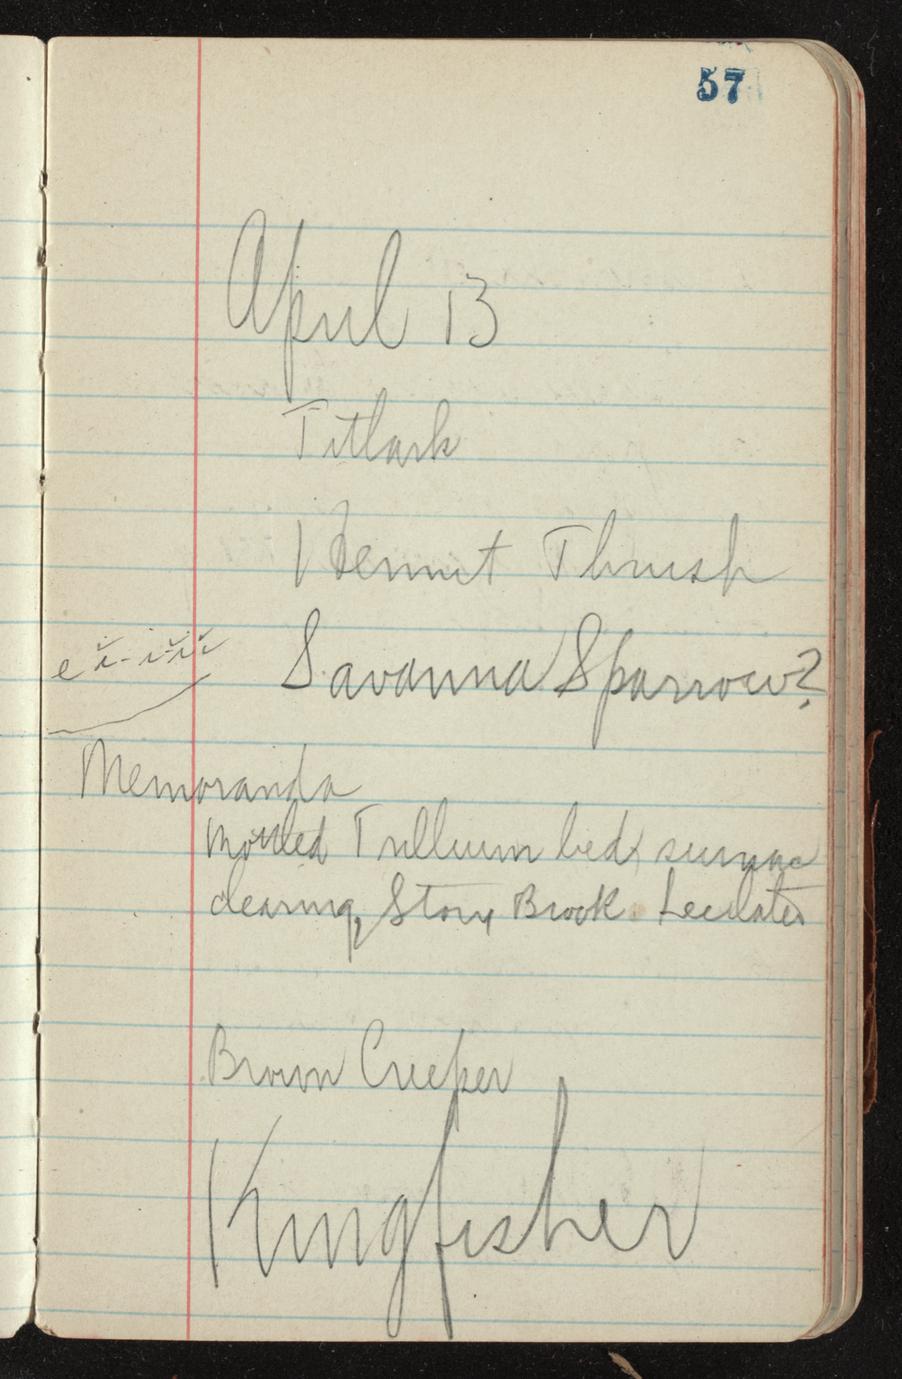 57
April 13
Titlark
Hermit Thrush
Savanna Sparrow?
Memoranda
Mottled Trillium bed, sumac
clearing, Stony Brook. Located
Brown Creeper
Kingfisher